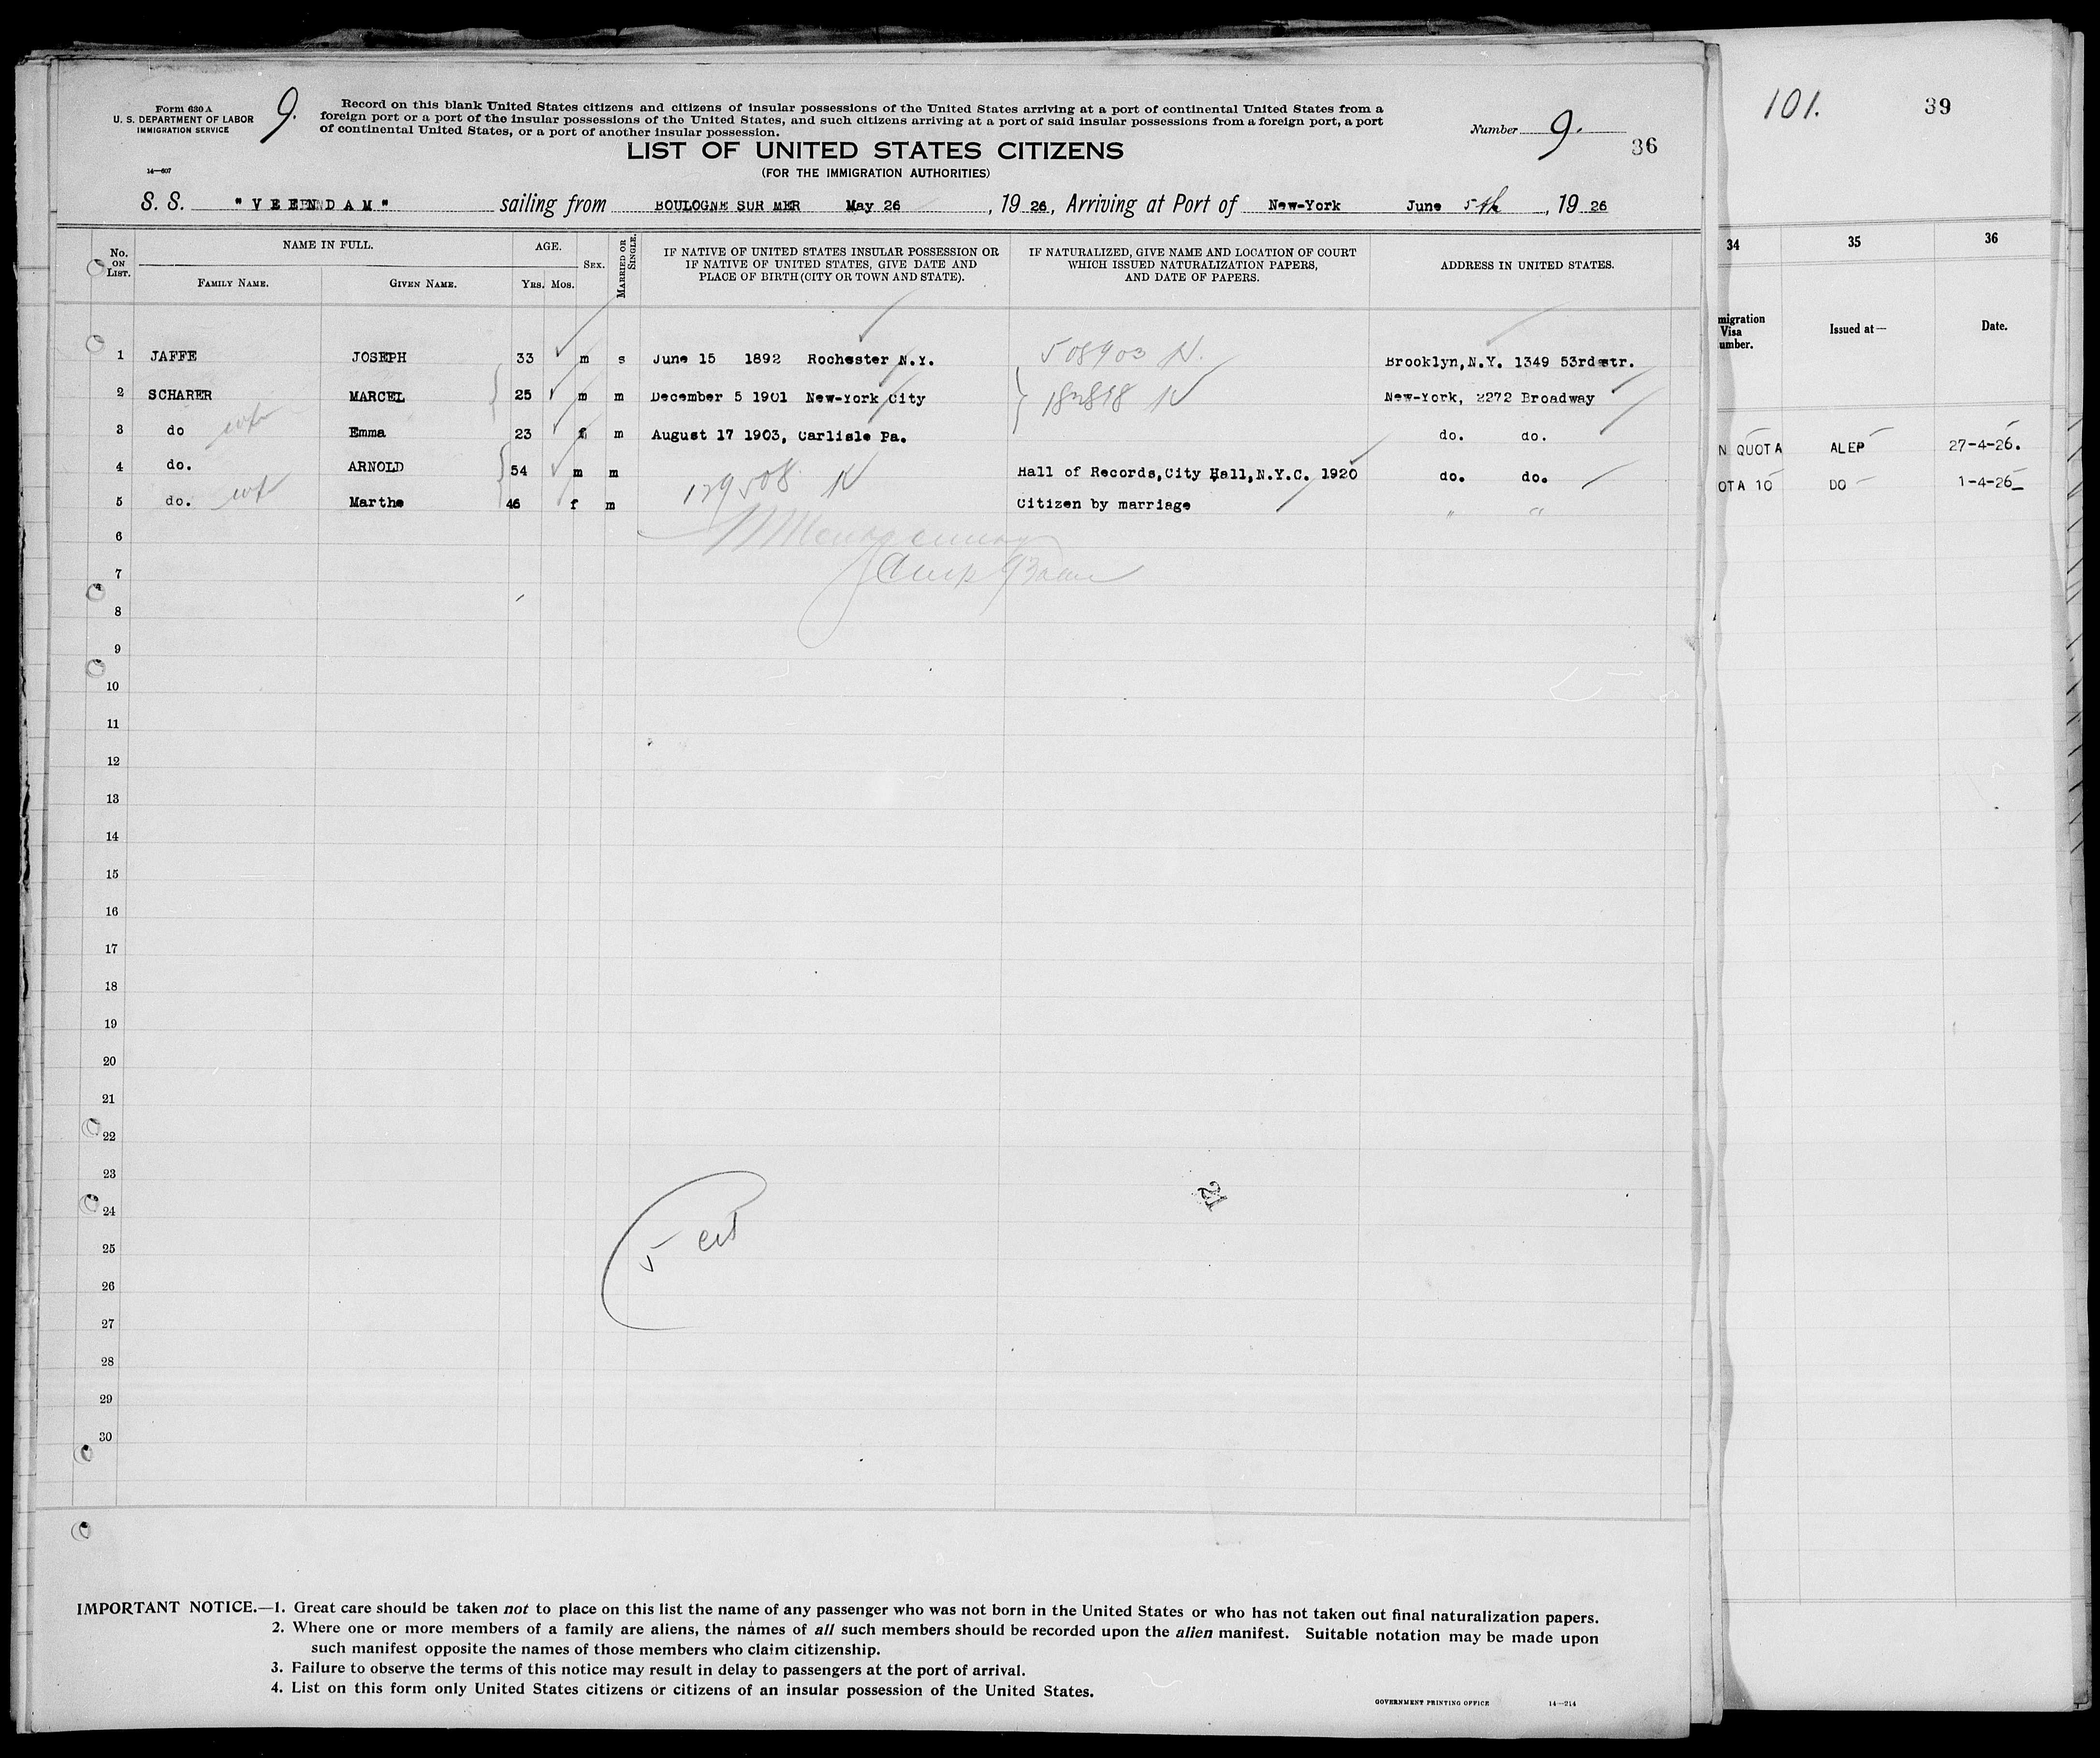 Form 630 A
U. S. DEPARTMENT OF LABOR
IMMIGRATION SERVICE
9.
Record on this blank United States citizens and citizens of insular possessions of the United States arriving at a port of continental United States from a
foreign port or a port of the insular possessions of the United States, and such citizens arriving at a port of said insular possessions from a foreign port, a port
of continental United States, or a port of another insular possession.
Number 9.
36
14—607
LIST OF UNITED STATES CITIZENS
(FOR THE IMMIGRATION AUTHORITIES)
S. S. "VEENDAM" sailing from BOULOGNE SUR MER May 26, 19 26, Arriving at Port of New-York June 5th, 19 26
No. ON LIST.
NAME IN FULL.
FAMILY NAME. GIVEN NAME.
AGE.
YRS. MOS.
SEX.
MARRIED OR SINGLE.
IF NATIVE OF UNITED STATES INSULAR POSSESSION OR
IF NATIVE OF UNITED STATES, GIVE DATE AND
PLACE OF BIRTH (CITY OR TOWN AND STATE).
IF NATURALIZED, GIVE NAME AND LOCATION OF COURT
WHICH ISSUED NATURALIZATION PAPERS,
AND DATE OF PAPERS.
ADDRESS IN UNITED STATES.
1 JAFFE JOSEPH 33 m s June 15 1892 Rochester N.Y. 508903 N. Brooklyn, N.Y. 1349 53rd str.
2 SCHARER MARCEL 25 m m December 5 1901 New-York City New-York, 2272 Broadway
3 do Emma 23 f m August 17 1903, Carlisle Pa. do. do.
4 do. ARNOLD 54 m m Hall of Records, City Hall, N.Y.C. 1920 do. do.
5 do. wf Marthe 46 f m 129508 N Citizen by marriage " "
6
7
8
9
10
11
12
13
14
15
16
17
18
19
20
21
22
23
24
25
26
27
28
29
30
5 cit
21
IMPORTANT NOTICE.—1. Great care should be taken not to place on this list the name of any passenger who was not born in the United States or who has not taken out final naturalization papers.
2. Where one or more members of a family are aliens, the names of all such members should be recorded upon the alien manifest. Suitable notation may be made upon
such manifest opposite the names of those members who claim citizenship.
3. Failure to observe the terms of this notice may result in delay to passengers at the port of arrival.
4. List on this form only United States citizens or citizens of an insular possession of the United States.
GOVERNMENT PRINTING OFFICE 14—214
101. 39
34 35 36
migration
Visa
umber.
Issued at—
Date.
N QUOTA ALEP 27-4-26.
OTA 10 DO 1-4-26